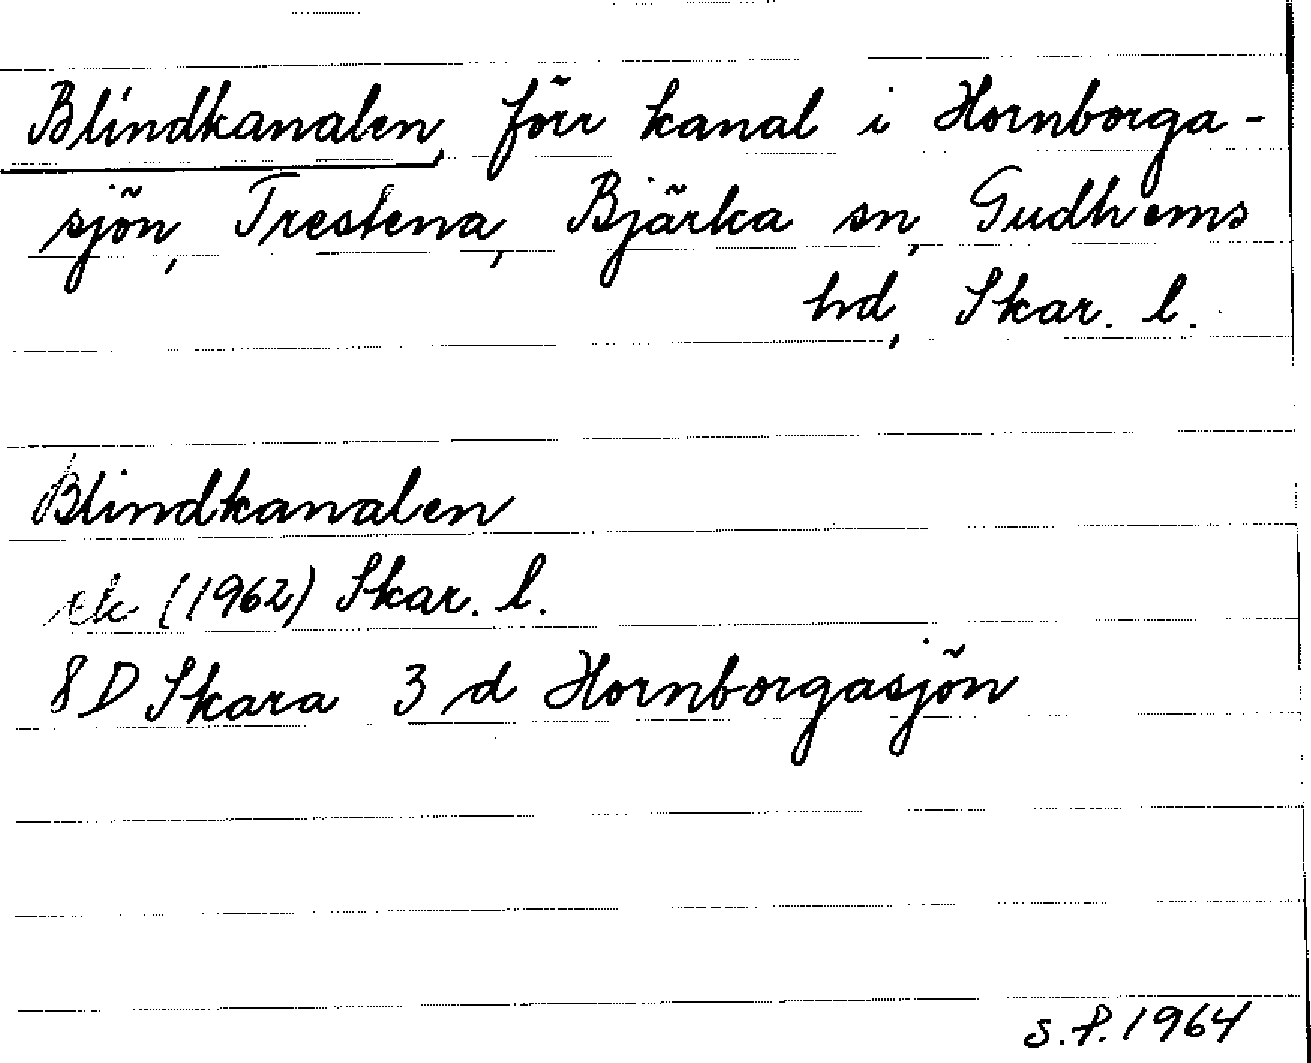 Blindkanalen, förr kanal i Hornborga-
sjön, Trestena, Bjärka sn, Gudhems
hd, Skar. l.
Blindkanalen
ek (1962) Skar. l.
8D Skara 3 d Hornborgasjön
S.P. 1964